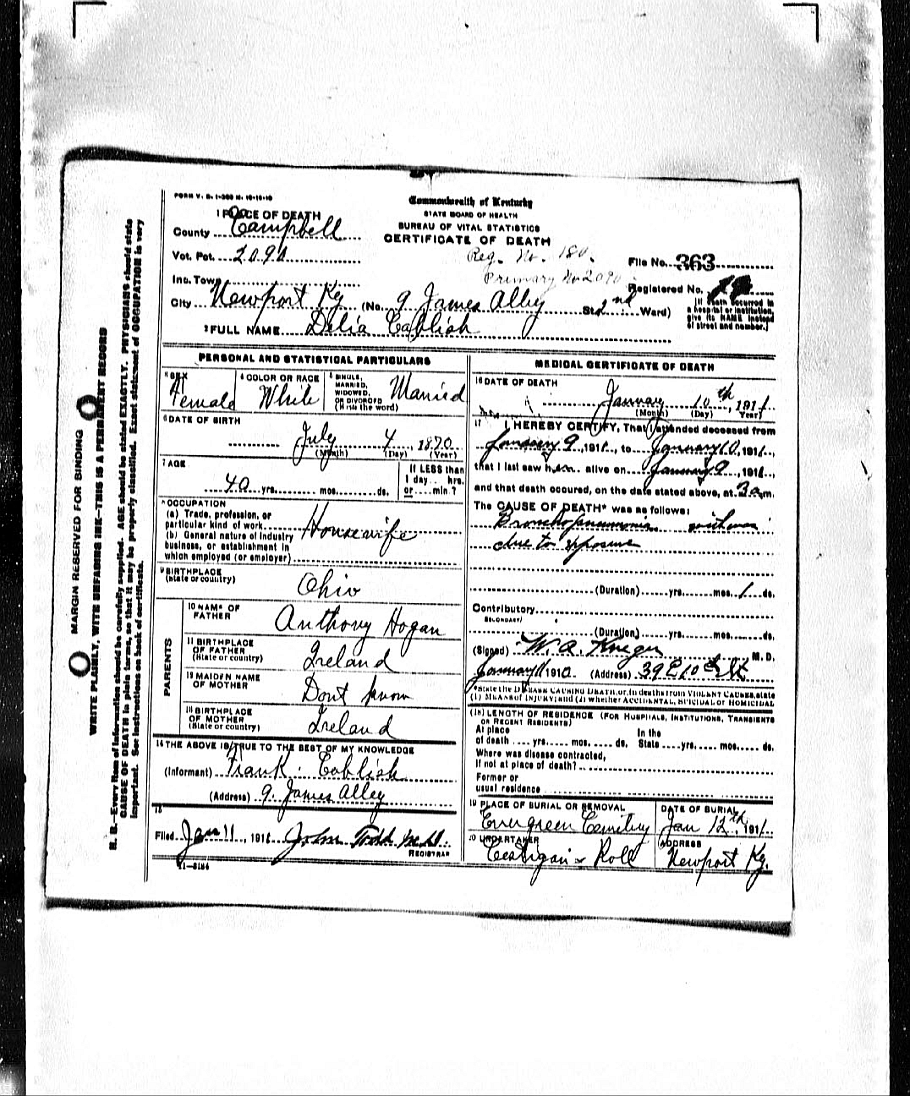 FORM V. S. 1-
Commonwealth of Kentucky
STATE BOARD OF HEALTH
BUREAU OF VITAL STATISTICS
CERTIFICATE OF DEATH
1 PLACE OF DEATH
County Campbell
Vot. Pct. 2090
Reg. No. 180.
Primary No 2090
File No. 363
Inc. Town
Registered No. 19
City Newport Ky (No. 9 James Alley St. 2nd Ward)
[If death occurred in a hospital or institution, give its NAME instead of street and number.]
2 FULL NAME Delia Cablish
PERSONAL AND STATISTICAL PARTICULARS
3 SEX Female
4 COLOR OR RACE White
5 SINGLE, MARRIED, WIDOWED, OR DIVORCED (Write the word) Married
6 DATE OF BIRTH
July 4, 1870
(Month) (Day) (Year)
7 AGE
40 yrs. mos. ds.
If LESS than 1 day hrs. or min.?
8 OCCUPATION
(a) Trade, profession, or particular kind of work Housewife
(b) General nature of industry business, or establishment in which employed (or employer)
9 BIRTHPLACE
(State or country) Ohio
PARENTS
10 NAME OF FATHER Anthony Hogan
11 BIRTHPLACE OF FATHER (State or country) Ireland
12 MAIDEN NAME OF MOTHER Dont know
13 BIRTHPLACE OF MOTHER (State or country) Ireland
14 THE ABOVE IS TRUE TO THE BEST OF MY KNOWLEDGE
(Informant) Frank Cablish
(Address) 9 James Alley
15
Filed Jan 11, 1911 John Todd M.D.
REGISTRAR
MEDICAL CERTIFICATE OF DEATH
16 DATE OF DEATH
January 10th, 1911
(Month) (Day) (Year)
17 I HEREBY CERTIFY, That I attended deceased from
January 9, 1911, to January 10, 1911,
that I last saw her alive on January 9, 1911
and that death occured, on the date stated above, at 3 a m.
The CAUSE OF DEATH* was as follows:
Bronchopneumonia
due to exposure
(Duration) yrs. mos. 1 ds.
Contributory
SECONDARY
(Duration) yrs. mos. ds.
(Signed) W. A. Krieger M. D.
January 11 1910 (Address) 39 E 10th St
*State the DISEASE CAUSING DEATH, or, in deaths from VIOLENT CAUSES, state
(1) MEANS OF INJURY; and (2) whether ACCIDENTAL, SUICIDAL OR HOMICIDAL
18 LENGTH OF RESIDENCE (FOR HOSPITALS, INSTITUTIONS, TRANSIENTS OR RECENT RESIDENTS)
At place of death yrs. mos. ds. In the State yrs. mos. ds.
Where was disease contracted, if not at place of death?
Former or usual residence
19 PLACE OF BURIAL OR REMOVAL Evergreen Cemetery
DATE OF BURIAL Jan 12th, 1911
20 UNDERTAKER Costigan & Roll
ADDRESS Newport Ky.
MARGIN RESERVED FOR BINDING
WRITE PLAINLY, WITH UNFADING INK—THIS IS A PERMANENT RECORD
N. B.—Every item of information should be carefully supplied. AGE should be stated EXACTLY. PHYSICIANS should state
CAUSE OF DEATH in plain terms, so that it may be properly classified. Exact statement of OCCUPATION is very
important. See instructions on back of certificate.